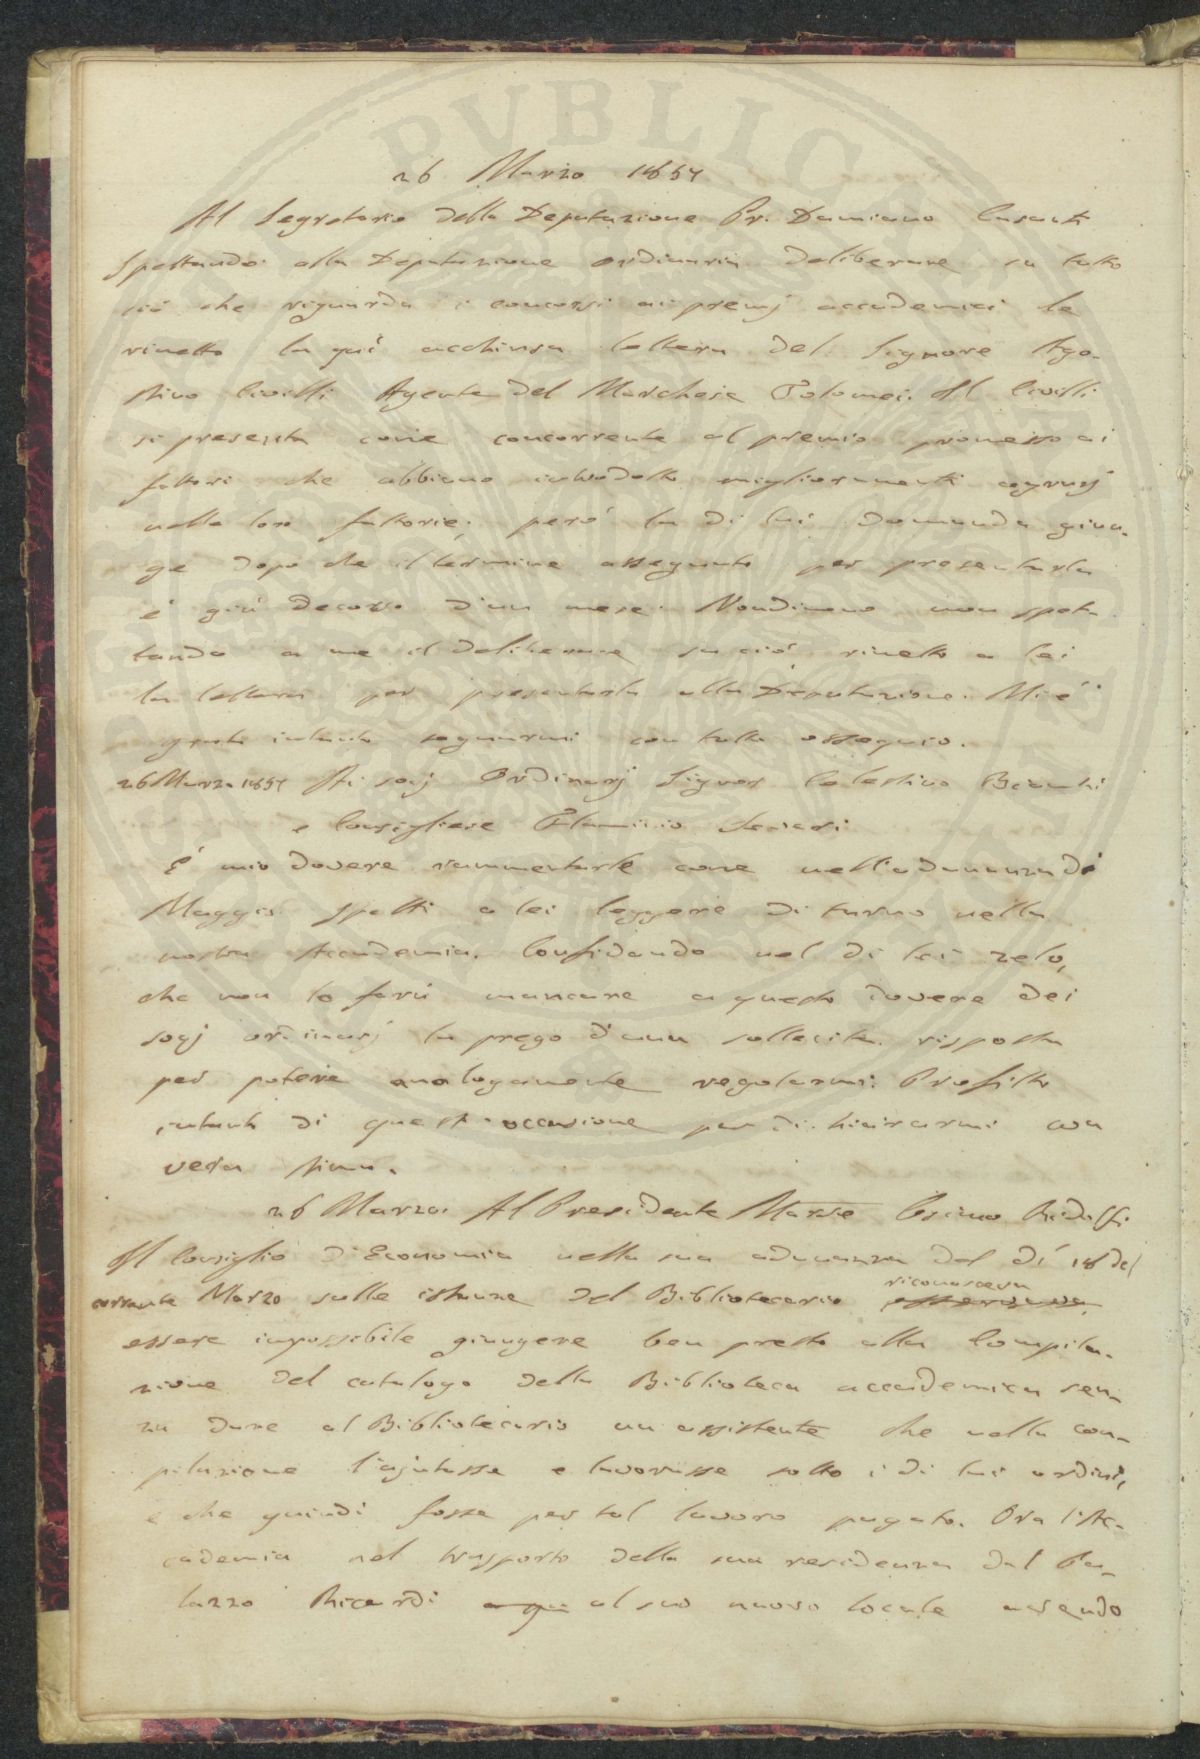 26 Marzo 1857
Al Segretario della Deputazione Pr. Damiano Casanti
Spettando alla Deputazione ordinaria deliberare su tutto
ciò che riguarda i concorsi ai premj accademici le
rimetto la quì acchiusa lettera del Signore Ago-
stino Civilli Agente del Marchese Tolomei. Il Civilli
si presenta come concorrente al premio promesso ai
fattori che abbiano introdotto miglioramenti agrarj
nelle loro fattorie; però la di lui domanda giun-
ge dopo che il termine assegnato per presentarla
è già decorso d'un mese. Nondimeno non spet-
tando a me il deliberare su ciò, rimetto a lei
la lettera per presentarla alla Deputazione. Mi è
grato intanto segnarmi con tutto ossequio.
26 Marzo 1857 Ai socj Ordinarj Signor Celestino Bianchi
e Consigliere Flaminio Severi
È mio dovere rammentarle come nell'adunanza di
Maggio spetti a lei leggere di turno nella
nostra Accademia. Confidando nel di lei zelo,
che non lo farà mancare a questo dovere dei
socj ordinarj la prego d'una sollecita risposta
per potere analogamente regolarmi. Profitto
intanto di quest'occasione per dichiararmi con
vera stima.
26 Marzo. Al Presidente Marse Cosimo Ridolfi
Il Consiglio d'Economia nella sua adunanza del dí 18 del
riconosceva
corrente Marzo sulle istanze del Bibliotecario osservava
essere impossibile giungere ben presto alla Compila-
zione del catalogo della Biblioteca accademica sen-
za dare al Bibliotecario un assistente che nella com-
pilazione l'ajutasse e lavorasse sotto i di lui ordini,
e che quindi fosse per tal lavoro pagato. Ora l'Ac-
cademia nel trasporto della sua residenza dal Pa-
lazzo Ricardi al suo nuovo locale avendo
PVBLIC